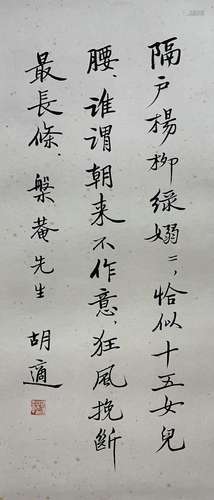 隔户楊柳綠嫋〻,恰似十五女兒
腰,誰謂朝来不作意,狂風挽斷
最長條.槃菴先生 胡適